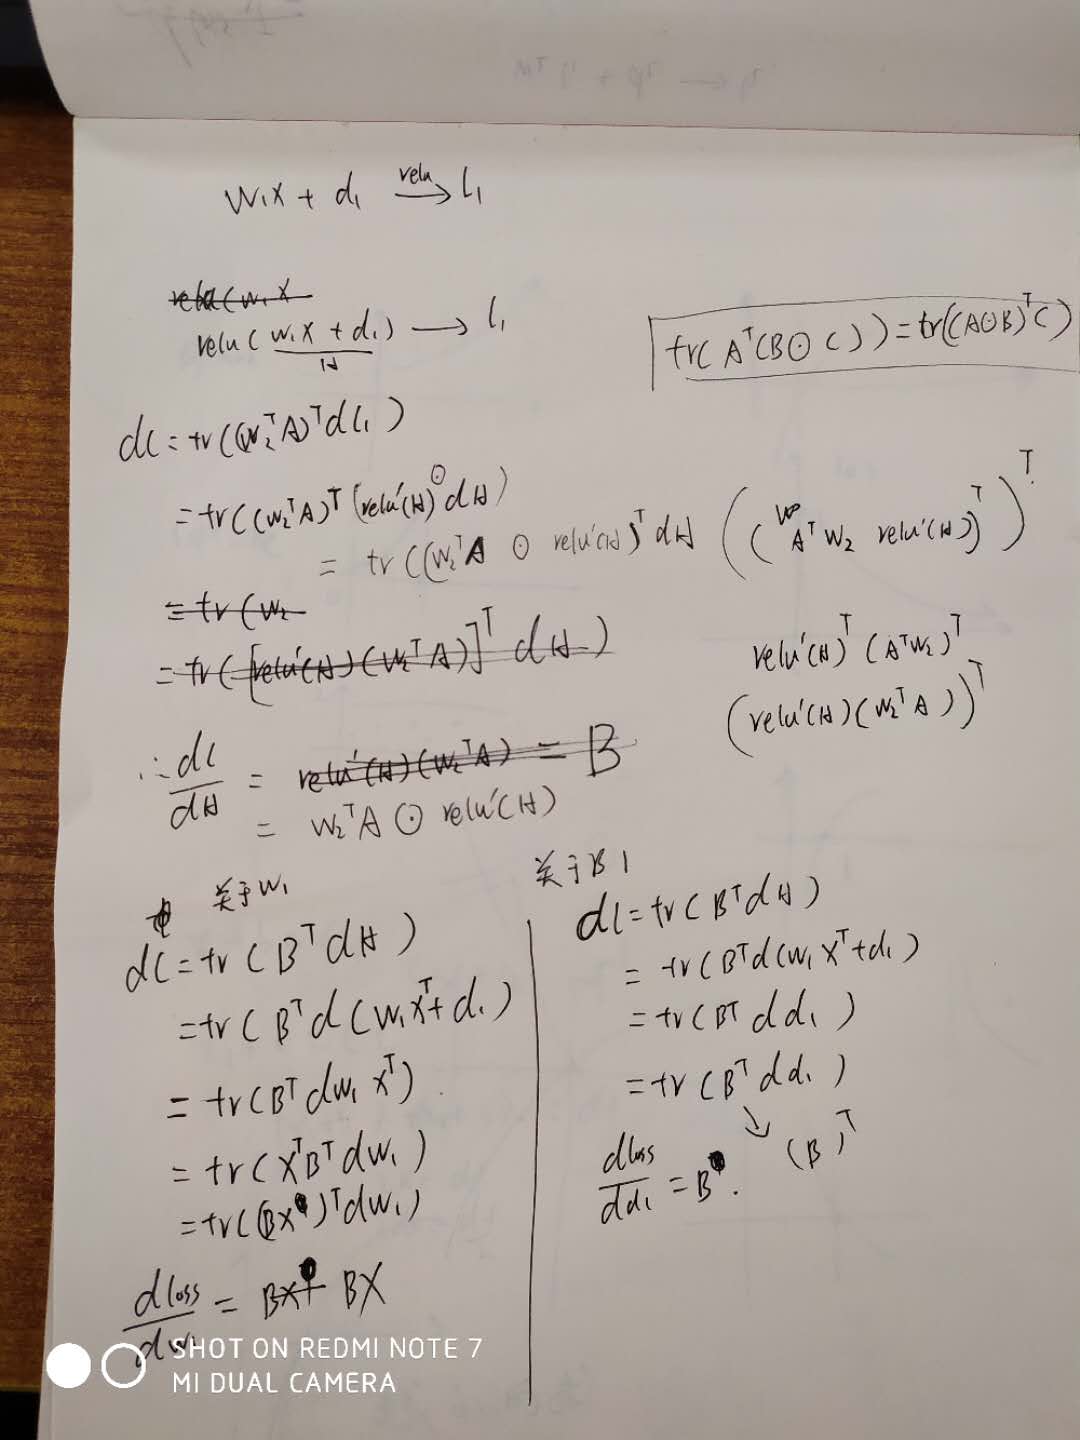 W₁X + d₁ relu→ l₁
relu(W₁X
relu(W₁X + d₁) → l₁
H
tr(Aᵀ(B⊙C)) = tr((A⊙B)ᵀC)
dl = tr((W₂ᵀA)ᵀdl₁)
= tr((W₂ᵀA)ᵀ(relu'(H)⊙dH)
= tr((W₂ᵀA ⊙ relu'(H)ᵀdH
((AᵀW₂ relu'(H))ᵀ)ᵀ
= tr(W₂
= tr([relu'(H)(W₂ᵀA)]ᵀdH)
relu'(H)ᵀ(AᵀW₂)ᵀ
(relu'(H)(W₂ᵀA))ᵀ
∴ dl/dH = relu'(H)(W₂ᵀA) = B
= W₂ᵀA ⊙ relu'(H)
关于W₁
dl = tr(BᵀdH)
= tr(Bᵀd(W₁Xᵀ+d₁)
= tr(BᵀdW₁Xᵀ)
= tr(XᵀBᵀdW₁)
= tr((BX)ᵀdW₁)
dloss/dW₁ = BX BX
关于B1
dl = tr(BᵀdH)
= tr(Bᵀd(W₁Xᵀ+d₁)
= tr(Bᵀdd₁)
= tr(Bᵀdd₁)
(B)ᵀ
dloss/dd₁ = B.
SHOT ON REDMI NOTE 7
MI DUAL CAMERA